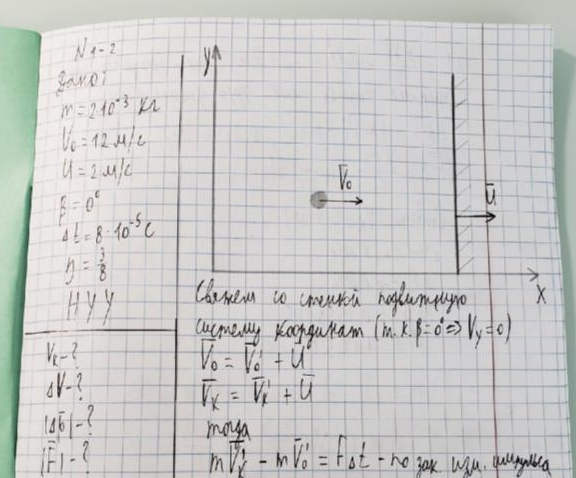 N 1-2
Дано:
m = 2·10⁻³ кг
V₀ = 12 м/с
U = 2 м/с
β = 0°
Δt = 8·10⁻⁵ с
η = 3/8
НУУ
Vк - ?
ΔV - ?
|Δp̅| - ?
|F̅| - ?
y
V̅₀
U̅
x
Свяжем со стенкой подвижную
систему координат (т.к. β=0° => Vy=0)
V̅₀ = V̅₀' + U̅
V̅к = V̅к' + U̅
тогда
mV̅к' - mV̅₀' = F̅Δt - по зак. изм. импульса